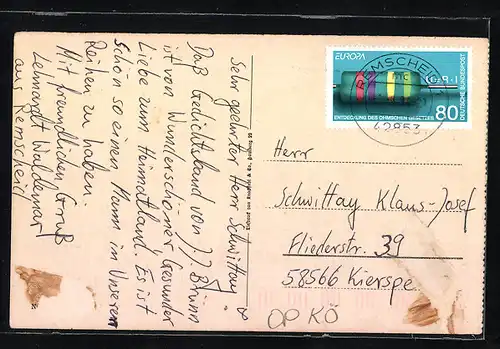 Sehr geehrter Herr Schwittay
Daß Gedichtband von J. J. Brünn
ist von Wunderschöner Gesunder
Liebe zum Heimatland. Es ist
Schön so einen Mann in Unseren
Reihen zu haben.
Mit freundlichen Gruß
Lehmardt Waldemar
aus Remscheid
EUROPA
DEUTSCHE BUNDESPOST
ENTDECKUNG DES OHMSCHEN GESETZES
80
REMSCHEID
mc
42853
Herr
Schwittay Klaus-Josef
Fliederstr. 39
58566 Kierspe
OP KÖ